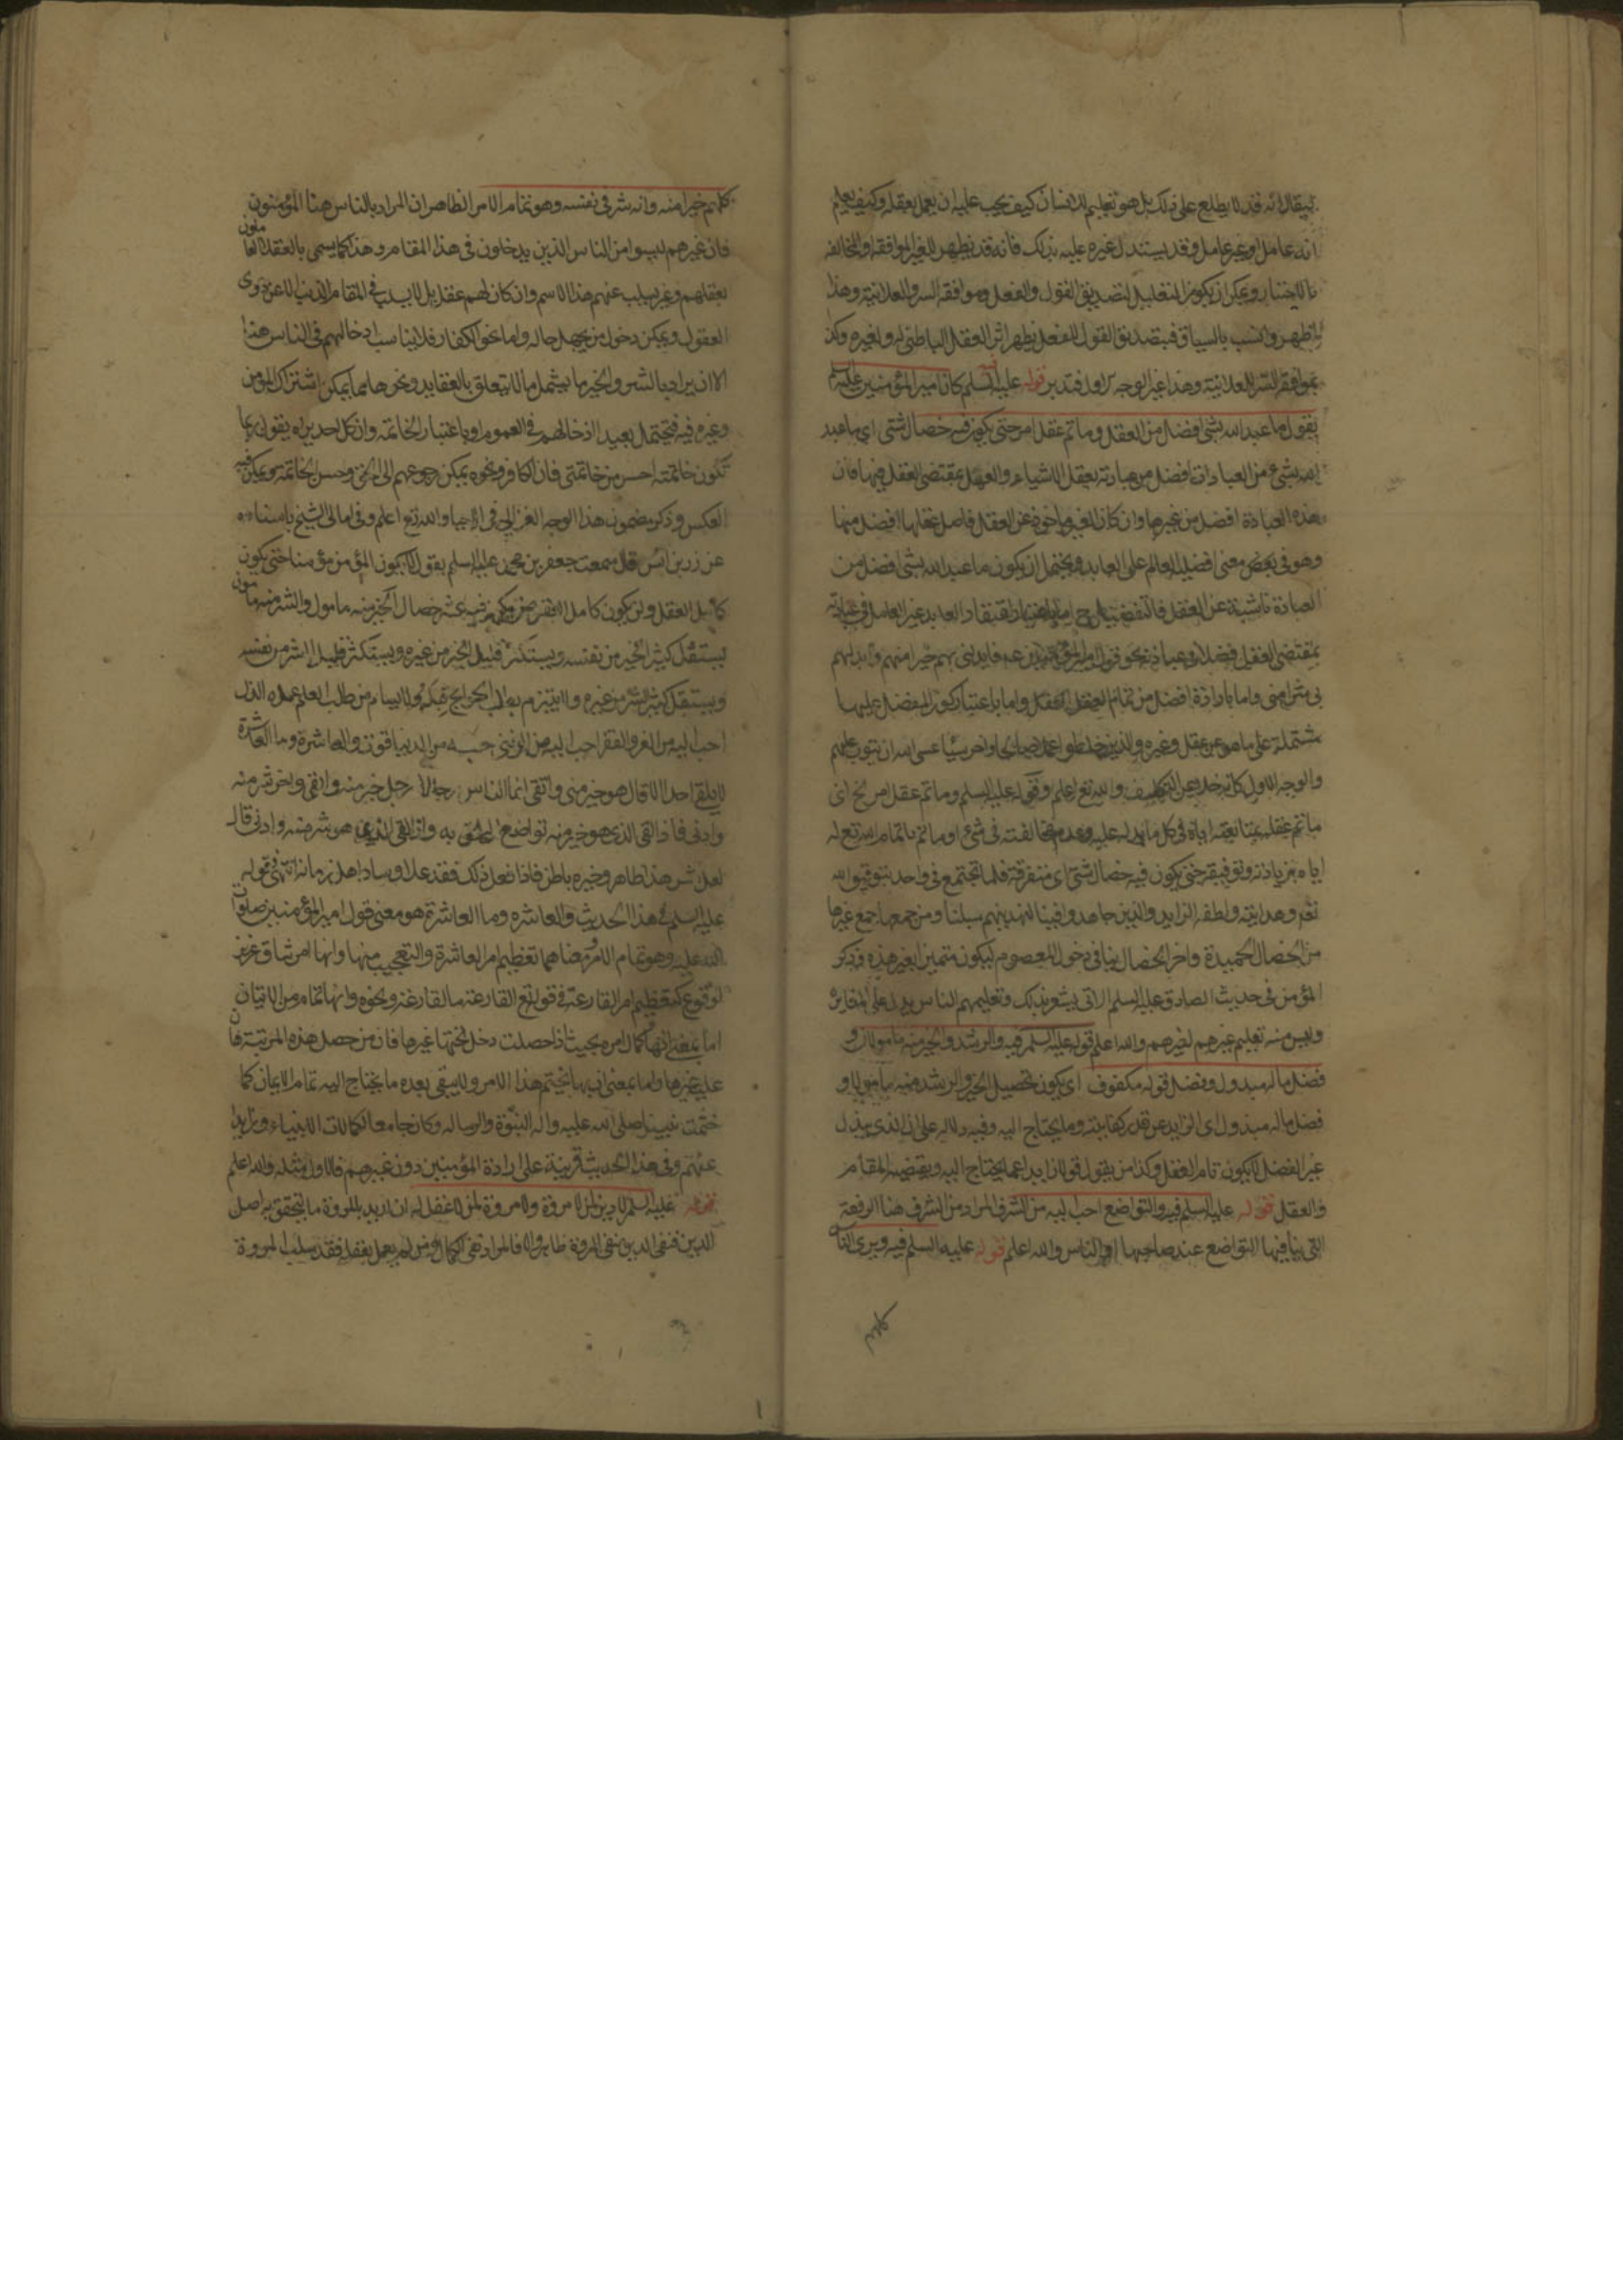 ليقال انه قد لا يطلع على ذلك بل هو تعليم للانسان كيف يجب عليه ان يعمل بعقله وكيف يعلم
انه عامل او غير عامل وقد يستدل غيره عليه بذلك فانه قد يظهر للغير الموافقة او المخالفة
بالاختبار ويمكن ان يكون التعليل لتصديق القول والفعل وموافقة السر والعلانية وهذا
اظهر وانسب بالسياق فبتصديق القول للفعل يظهر اثر العقل الباطني له ولغيره وكذا
بموافقة السر للعلانية وهذا غير الوجه الاول فتدبر قوله عليه السلم كان امير المؤمنين عليه السلم
يقول ما عبد الله بشئ افضل من العقل وما تم عقل امرء حتى يكون فيه خصال شتى اي ما عبد
الله بشئ من العبادات افضل من عبادته بعقل الاشياء والعمل بمقتضى العقل فيها فان
هذه العبادة افضل من غيرها وان كان الغير ماخوذ عن العقل فاصل عقلها افضل منها
وهو في بعض معنى افضلية العالم على العابد ويحتمل ان يكون ما عبد الله بشئ افضل من
العبادة ناشئة عن العقل فالتفضيل ح اما باعتبار اعتقاد العابد غير العامل في عبادته
بمقتضى العقل فضلا في عبادته نحو قول امير المؤمنين عه فابدلني بهم خيرا منهم وابدلهم
بي شرا مني واما بارادة افضل من تمام العقل العقل واما باعتبار كون المفضل عليها
مشتملة على ما هو عن عقل وغيره والذين خلطوا عملا صالحا واخر سيئا عسى الله ان يتوب عليهم
والوجه الاول كانه خلا عن التكليف والله تع اعلم وقوله عليه السلم وما تم عقل امرء الخ اي
ما تم عقله بمتابعته اياه في كل ما يدله عليه وعدم مخالفته في شئ او ما تم باتمام الله تع له
اياه بزيادته وتوفيقه حتى يكون فيه خصال شتى اي متفرقة فلما تجتمع في واحد بتوفيق الله
تع وهدايته ولطفه الزايد والذين جاهدوا فينا لنهدينهم سبلنا ومن جمعها جمع غيرها
من الخصال الحميدة واخر الخصال ينافي دخول المعصوم ليكون متميزا بغير هذه وذكر
المؤمن في حديث الصادق عليه السلم الاتي يشعر بذلك وتعليمهم الناس يدل على المغايرة
وليس منه تعليم غيرهم لغيرهم والله اعلم قوله عليه السلم فيه والرشد والخير منه مامولان و
فضل ماله مبذول وفضل قوله مكفوف اي يكون تحصيل الخير والرشد منه مامولا و
فضل ماله مبذول اي الزايد عن قدر كفايته وما يحتاج اليه وفيه دلالة على ان الذي يبذل
غير الفضل لا يكون تام العقل وكذا من يقول قولا زايدا عما يحتاج اليه ويقتضيه المقام
والعقل قوله عليه السلم فيه والتواضع احب اليه من الشرف المراد من الشرف هنا الرفعة
التي ينافيها التواضع عند صاحبها او الناس والله اعلم قوله عليه السلم فيه ويرى الناس
كلهم خيرا منه وانه شر في نفسه وهو تمام الامر الظاهر ان المراد بالناس هنا المؤمنون
فان غيرهم ليسوا من الناس الذين يدخلون في هذا المقام وهذا كما يسمى بالعقلاء العاملون
بعقلهم وغير يسلب عنهم هذا الاسم وان كان لهم عقل بل لا يسلب في المقام الذي الاعم ذوى
العقول ويمكن دخول من يجهل حاله واما نحو الكفار فلا يناسب ادخالهم في الناس هنا
الا ان يراد بالشر والخير ما يشمل ما لا يتعلق بالعقايد ونحوها مما يمكن اشتراك المؤمن
وغيره فيه فيحتمل بعيدا ادخالهم في العموم او باعتبار الخاتمة وان كل احد يراه يقول ربما
تكون خاتمته احسن من خاتمتي فان الكافر ونحوه يمكن رجوعهم الى الحق وحسن الخاتمة ويمكن فيه
العكس وذكر مضمون هذا الوجه الغزالي في الاحيا والله تع اعلم وفي امالى الشيخ باسناده
عن زر بن انس قال سمعت جعفر بن محمد عليه السلم يقول لا يكون المؤمن مؤمنا حتى يكون
كامل العقل ولن يكون كامل العقل حتى يكون فيه عشر خصال الخير منه مامول والشر منه مامون
يستقل كثير الخير من نفسه ويستكثر قليل الخير من غيره ويستكثر قليل الشر من نفسه
ويستقل كثير الشر من غيره ولا يتبرم بطلب الحوايج قبله ولا يسام من طلب العلم عمره الذل
احب اليه من العز والفقر احب اليه من الغنى حسبه من الدنيا قوت والعاشرة وما العاشرة
لا يلقى احدا الا قال هو خير مني واتقى انما الناس رجلان رجل خير منه واتقى واخر شر منه
وادنى فاذا لقي الذي هو خير منه تواضع له ليلحق به واذا لقي الذي هو شر منه وادنى قال
لعل شر هذا ظاهر وخيره باطن فاذا فعل ذلك فقد علا وساد اهل زمانه انتهى قوله
عليه السلم في هذا الحديث والعاشرة وما العاشرة هو معنى قول امير المؤمنين صلوات
الله عليه وهو تمام الامر ومعناهما تعظيم امر العاشرة والتعجيب منها وانها امر شاق عزيز
الوقوع كتعظيم امر القارعة في قوله تع القارعة ما القارعة ونحوه وانها تمام من الاتيان
اما بمعنى انها كمال امره بحيث اذا حصلت دخل تحتها غيرها فان من حصل هذه المرتبة فان
على غيرها واما بمعنى انه بها يختم هذا الامر ولا يبقى بعده ما يحتاج اليه تمام الايمان كما
ختمت بنبينا صلى الله عليه واله النبوة والرساله وكان جامعا لكمالات الانبياء وزايدا
عنهم وفي هذا الحديث قرينة على ارادة المؤمنين دون غيرهم فالاول مثله والله اعلم
قوله عليه السلم لا دين لمن لا مروة له ولا مروة لمن لا عقل له ان اريد بالمروة ما يتحقق به اصل
الدين فنفي الدين بنفي المروة ظاهر والا فالمراد نفي الكمال ومن لم يعمل بعقله فقد سلب المروة